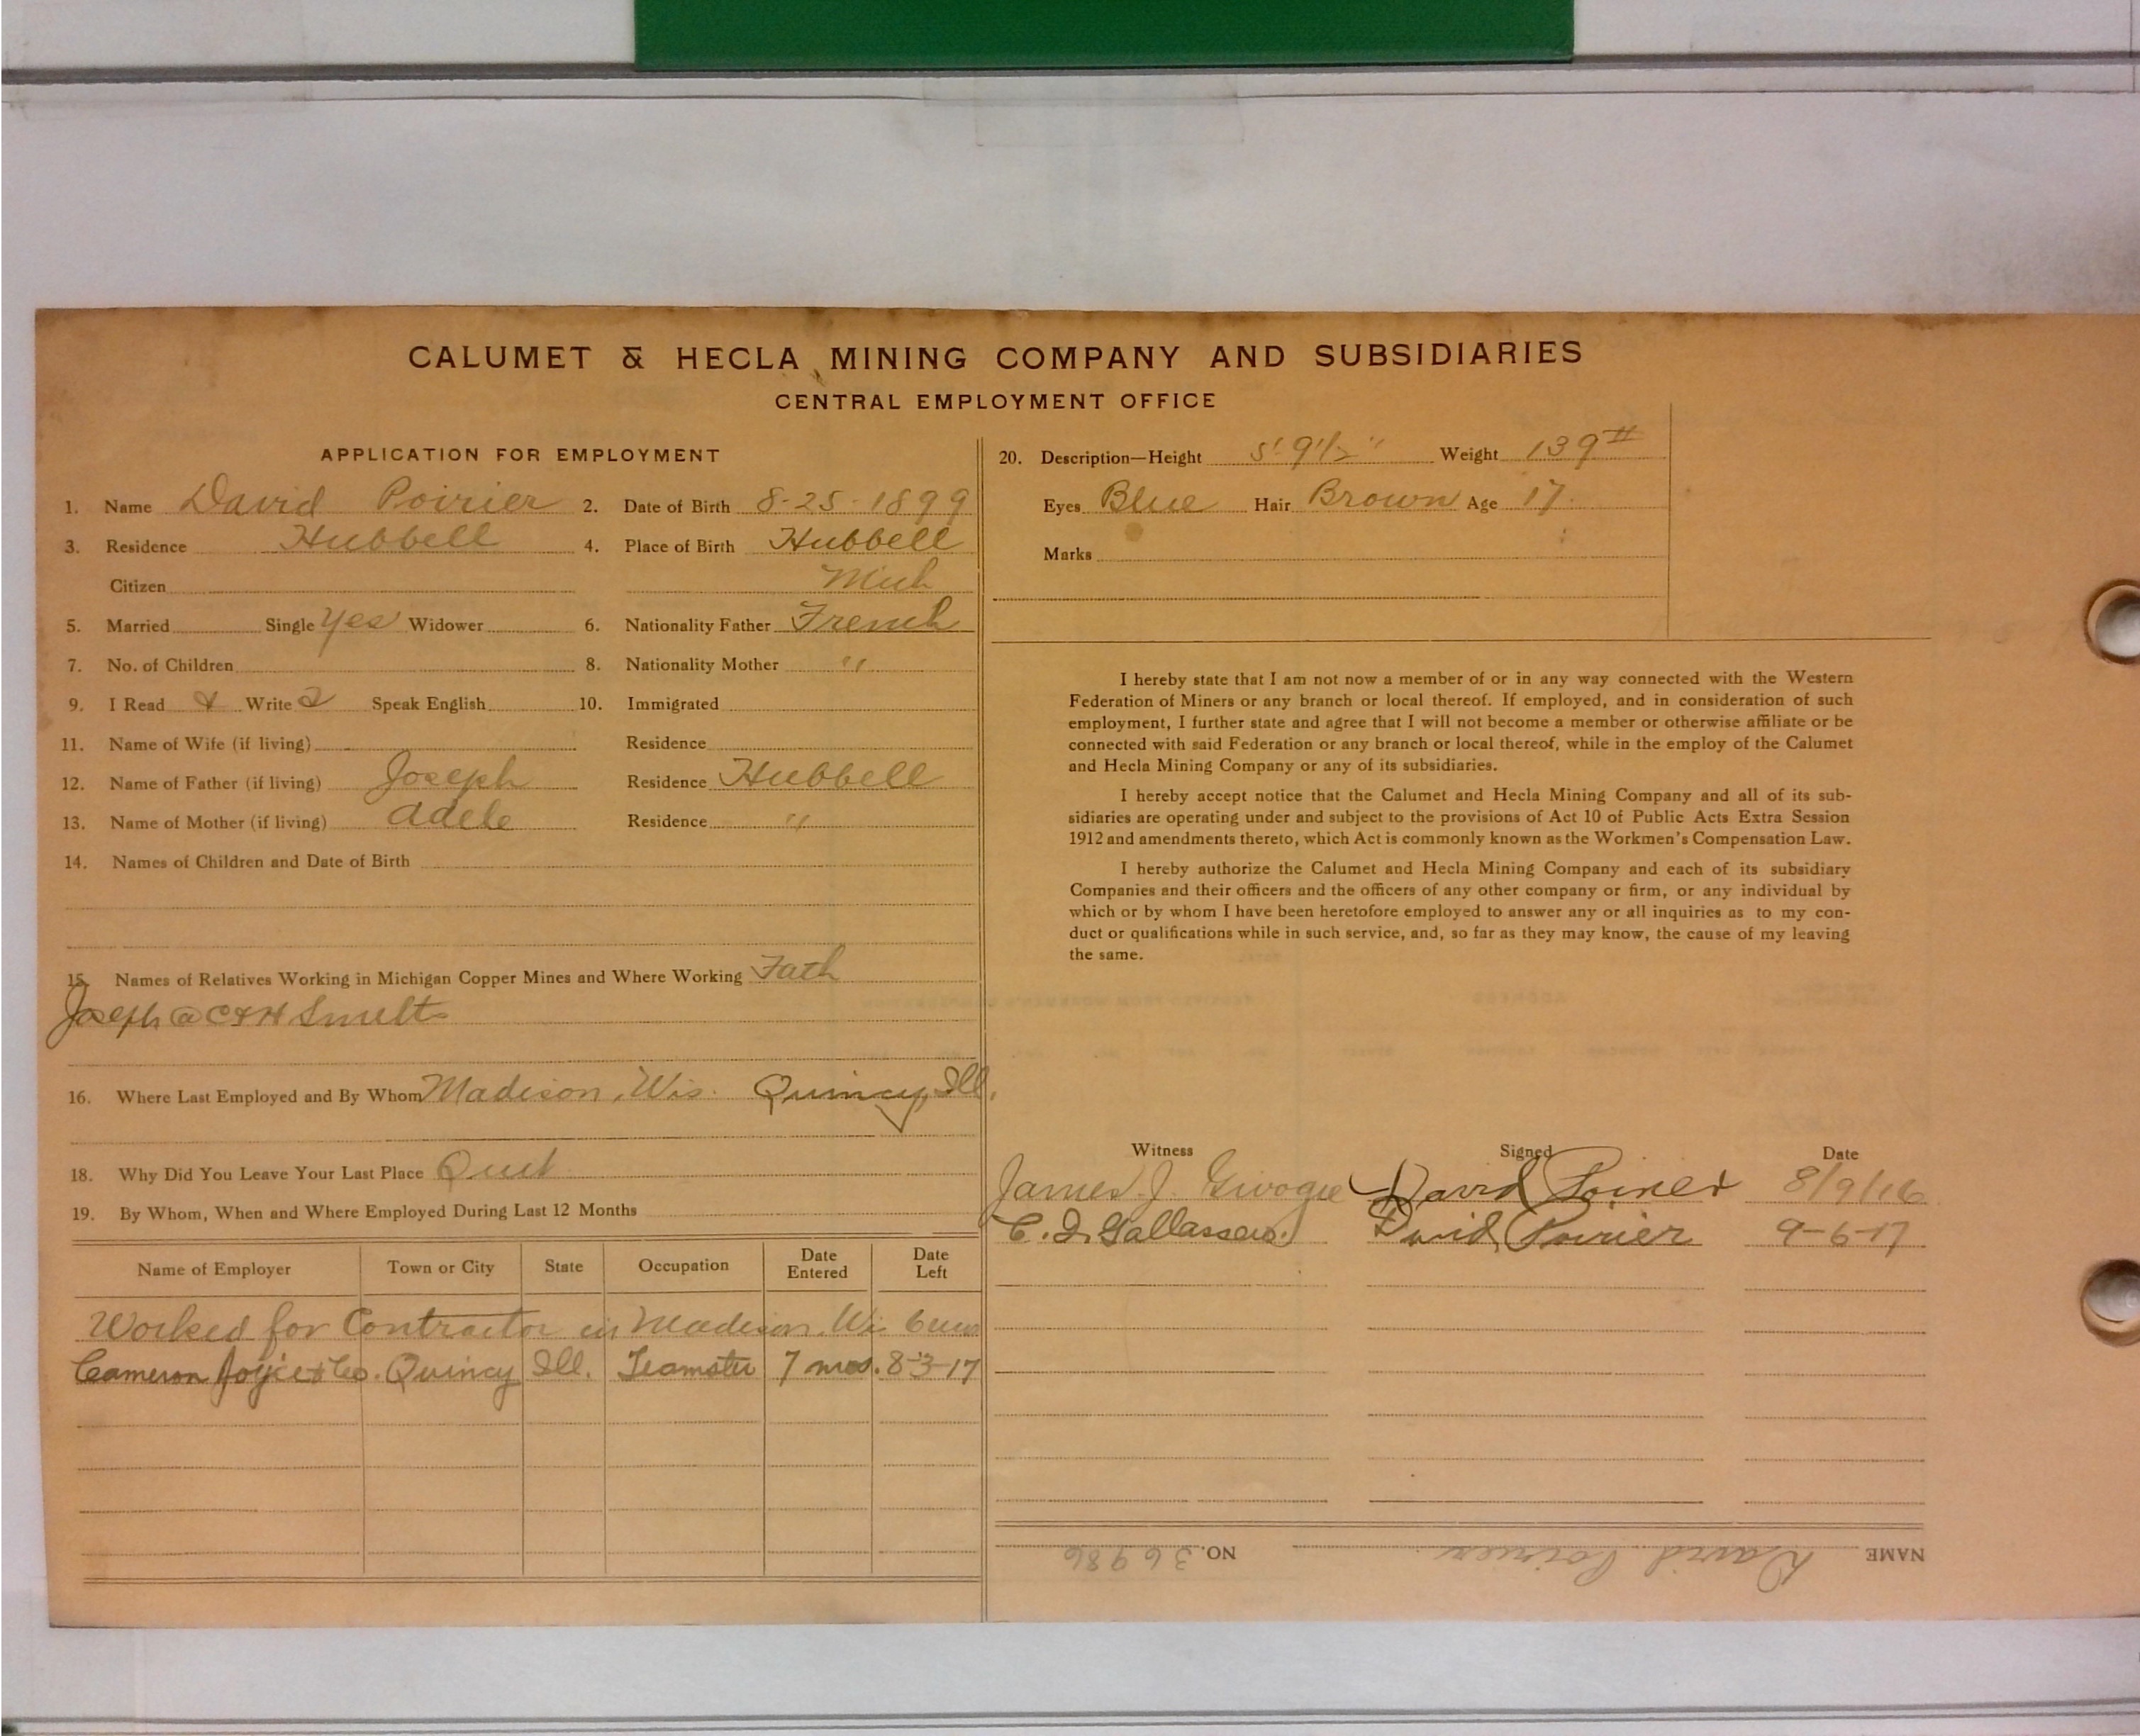 CALUMET & HECLA MINING COMPANY AND SUBSIDIARIES
CENTRAL EMPLOYMENT OFFICE
APPLICATION FOR EMPLOYMENT
1. Name David Poirier 2. Date of Birth 8-25-1899
3. Residence Hubbell 4. Place of Birth Hubbell
Citizen Mich
5. Married Single Yes Widower 6. Nationality Father French
7. No. of Children 8. Nationality Mother "
9. I Read & Write Speak English 10. Immigrated
11. Name of Wife (if living) Residence
12. Name of Father (if living) Joseph Residence Hubbell
13. Name of Mother (if living) Adele Residence "
14. Names of Children and Date of Birth
15. Names of Relatives Working in Michigan Copper Mines and Where Working Fath
Joseph @ C&H Smelt
16. Where Last Employed and By Whom Madison, Wis. Quincy, Ill.
18. Why Did You Leave Your Last Place Quit
19. By Whom, When and Where Employed During Last 12 Months
Name of Employer Town or City State Occupation Date Entered Date Left
Worked for Contractor in Madison, Wi 6
Cameron Joyce & Co. Quincy Ill. Teamster 7 mos. 8-3-17
20. Description—Height 5' 9 1/2" Weight 139#
Eyes Blue Hair Brown Age 17.
Marks
I hereby state that I am not now a member of or in any way connected with the Western
Federation of Miners or any branch or local thereof. If employed, and in consideration of such
employment, I further state and agree that I will not become a member or otherwise affiliate or be
connected with said Federation or any branch or local thereof, while in the employ of the Calumet
and Hecla Mining Company or any of its subsidiaries.
I hereby accept notice that the Calumet and Hecla Mining Company and all of its sub-
sidiaries are operating under and subject to the provisions of Act 10 of Public Acts Extra Session
1912 and amendments thereto, which Act is commonly known as the Workmen's Compensation Law.
I hereby authorize the Calumet and Hecla Mining Company and each of its subsidiary
Companies and their officers and the officers of any other company or firm, or any individual by
which or by whom I have been heretofore employed to answer any or all inquiries as to my con-
duct or qualifications while in such service, and, so far as they may know, the cause of my leaving
the same.
Witness Signed Date
James J. David Poirier 8/9/16
C. David Poirier 9-6-17
NAME David Poirier NO. 36986